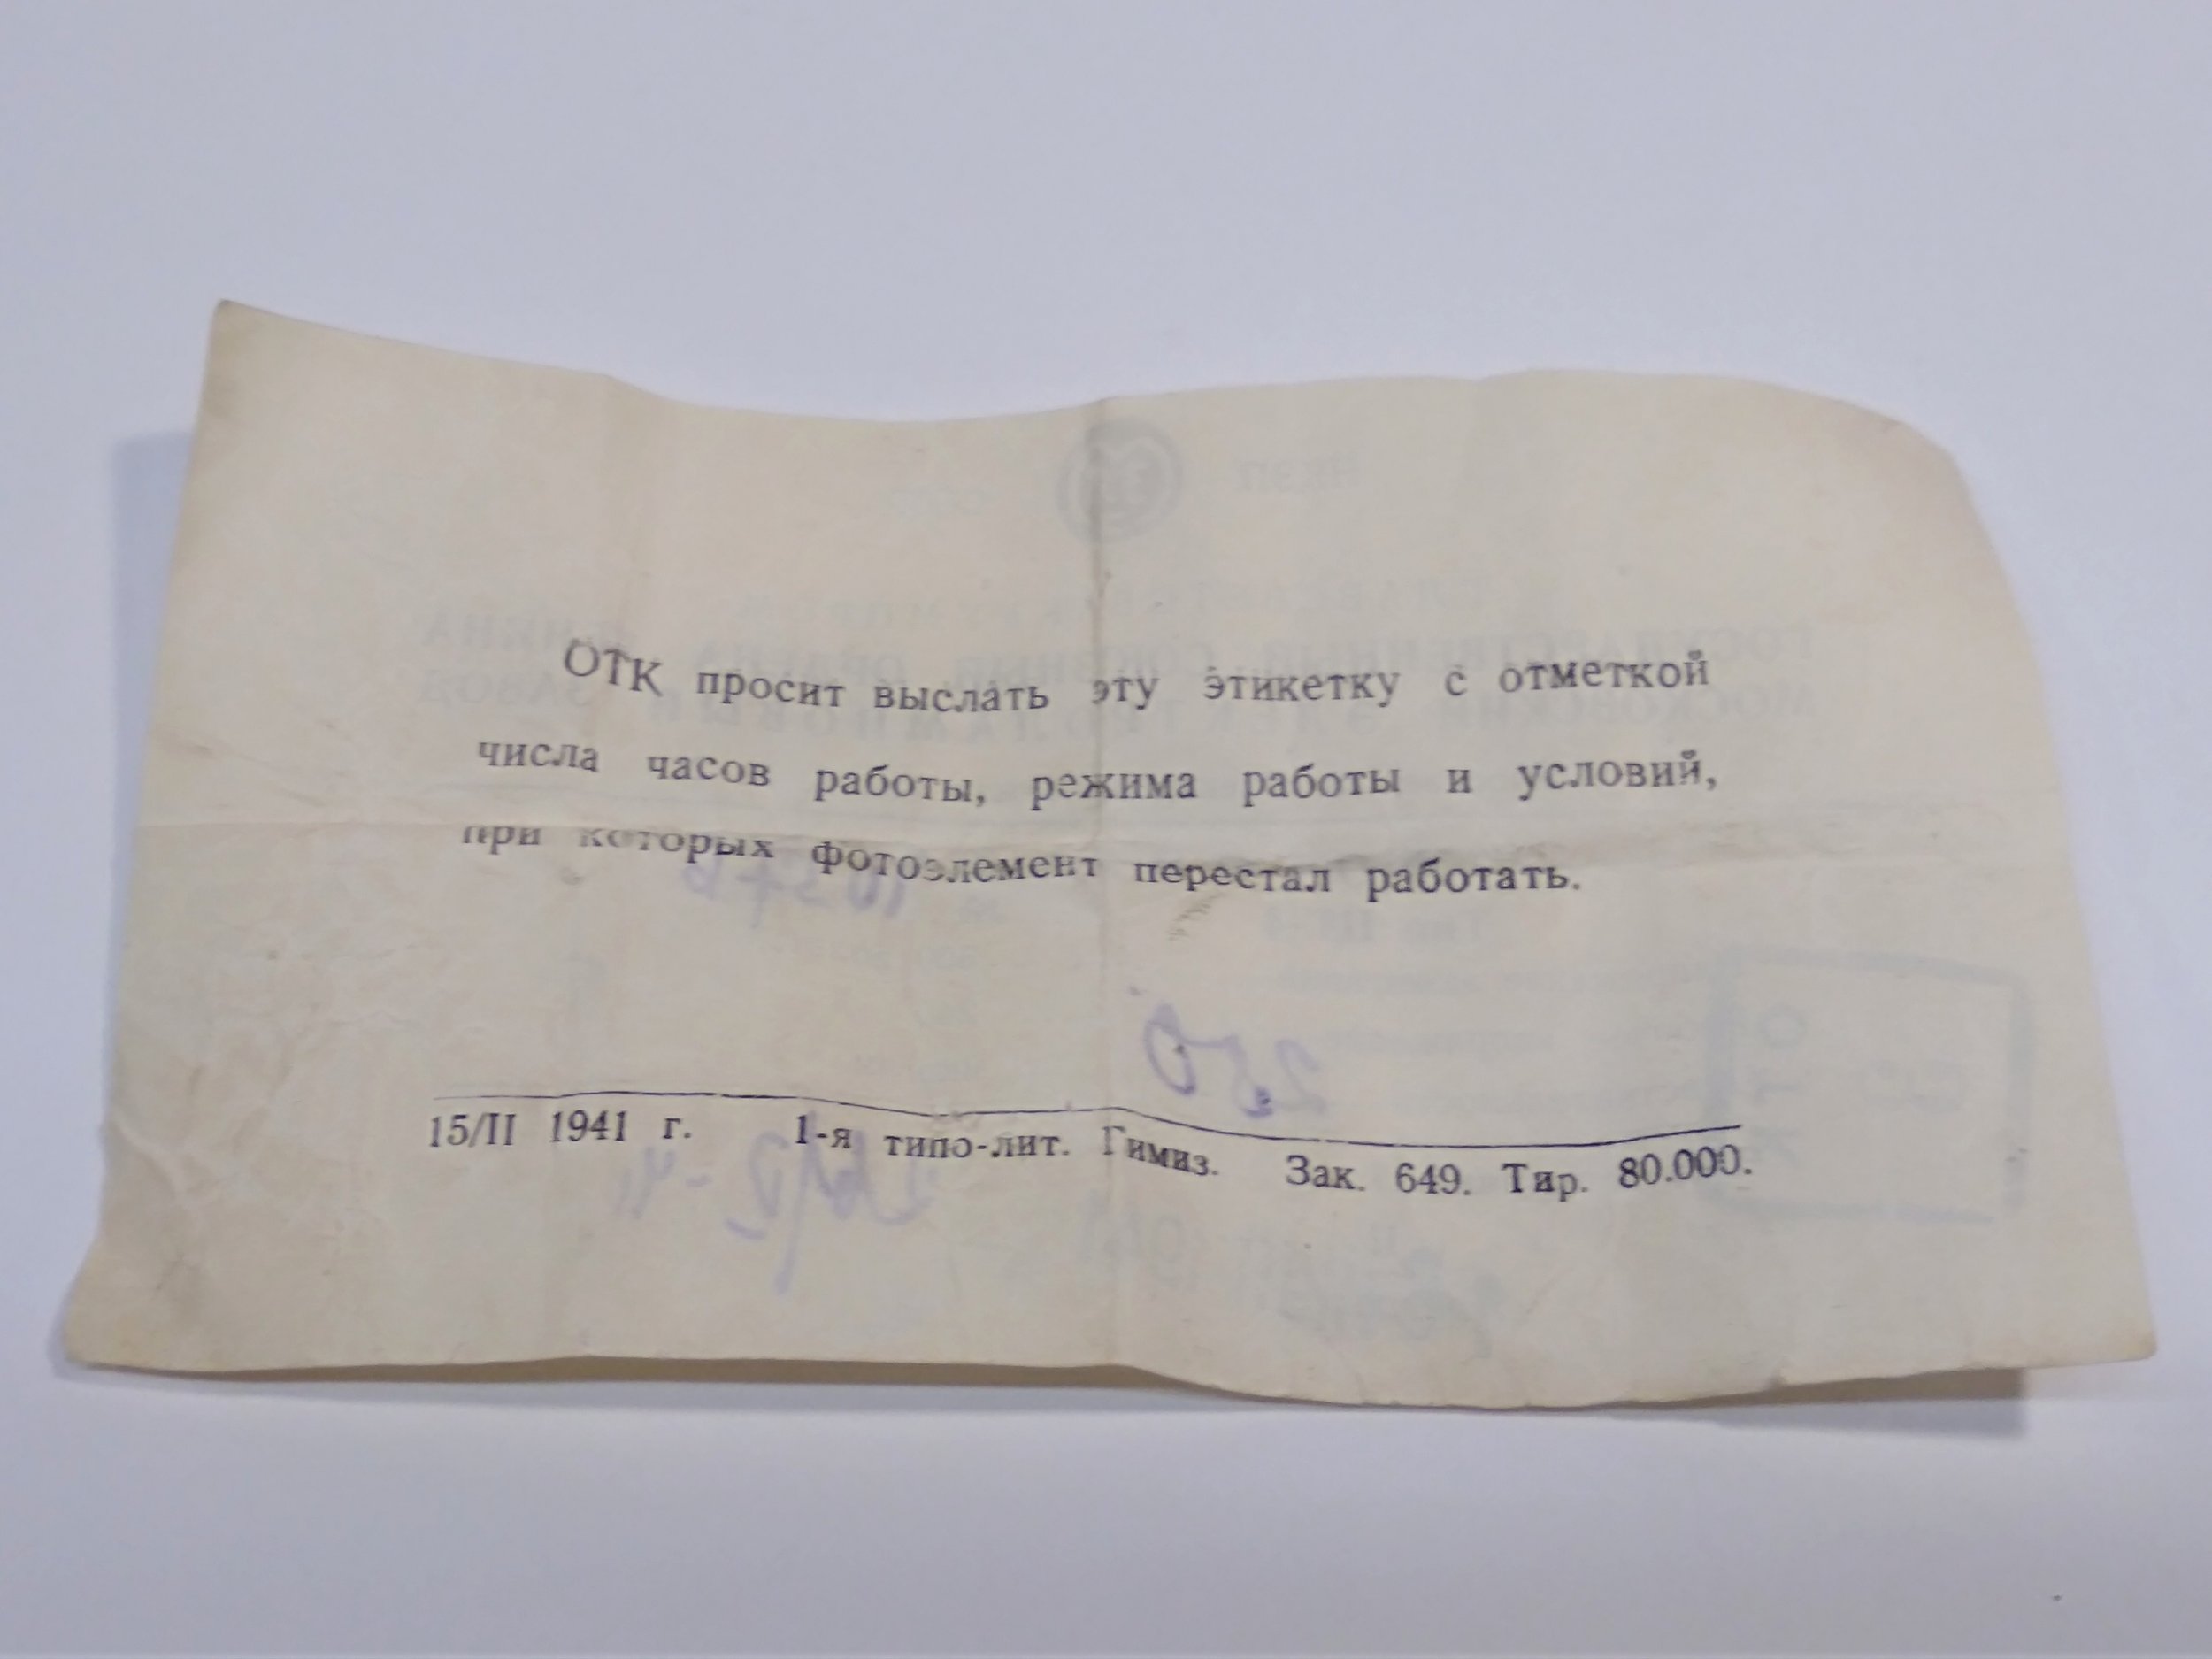 ОТК просит выслать эту этикетку с отметкой
числа часов работы, режима работы и условий,
при которых фотоэлемент перестал работать.
15/II 1941 г. 1-я типо-лит. Гимиз. Зак. 649. Тир. 80.000.